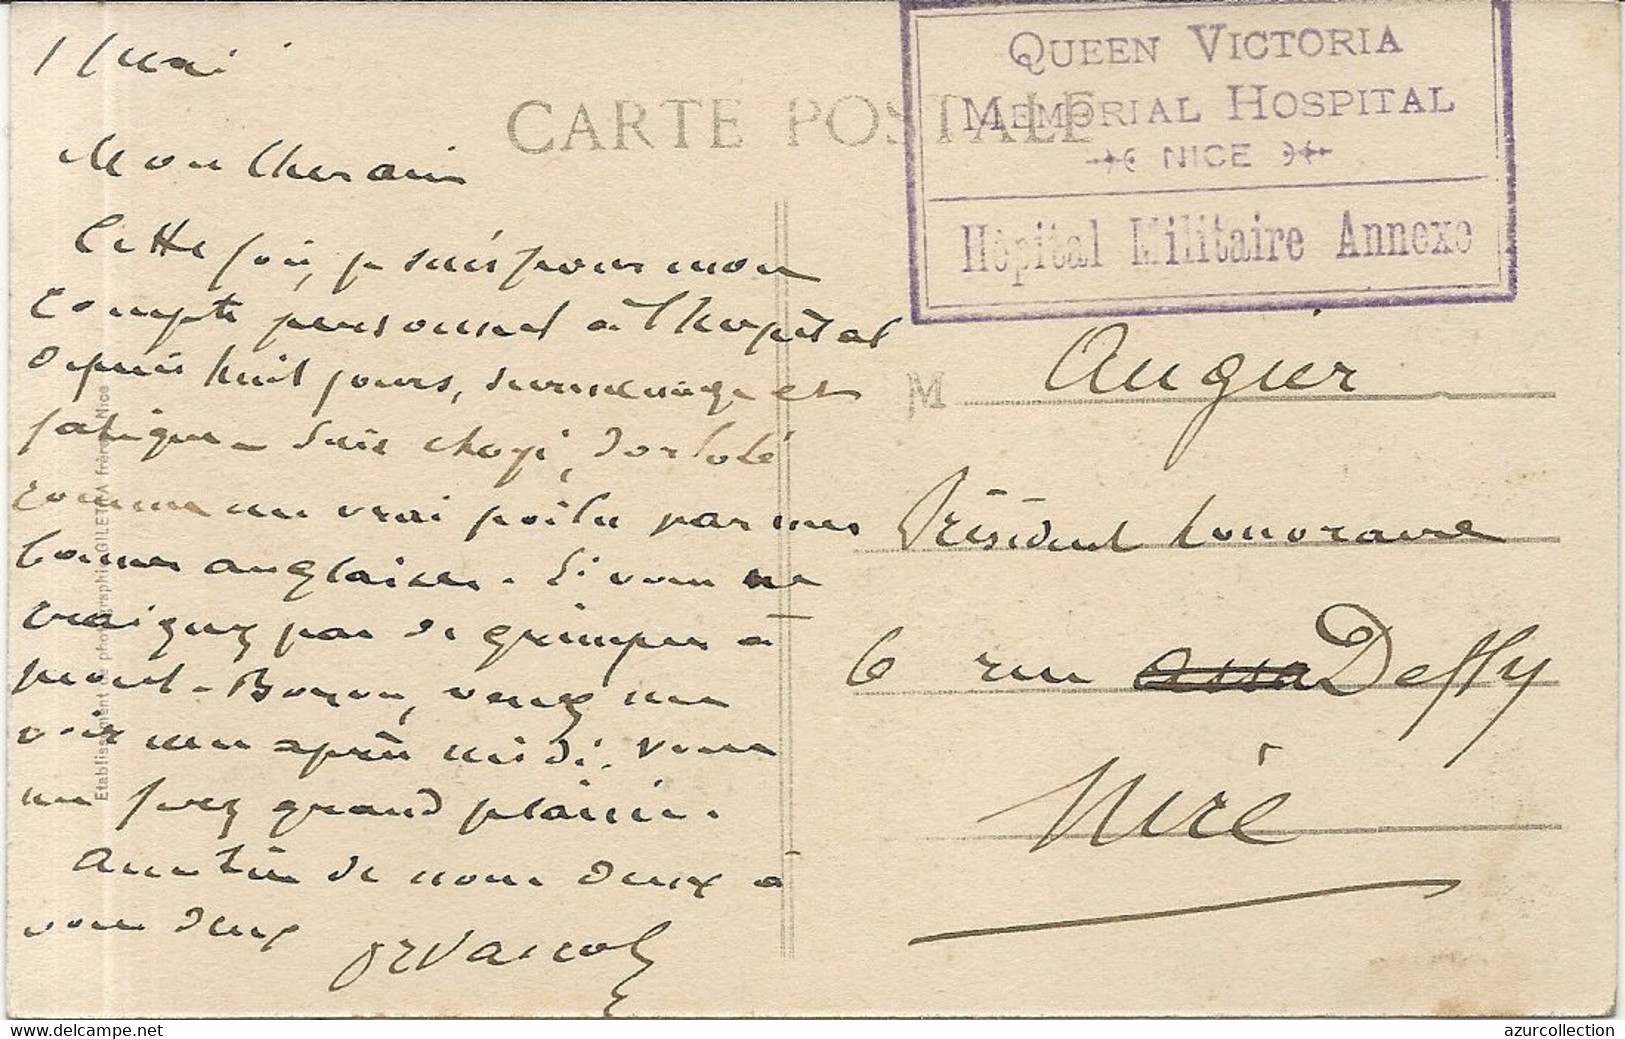 1 Mai
CARTE POSTALE
QUEEN VICTORIA
MEMORIAL HOSPITAL
NICE
Hôpital Militaire Annexe
Mon Cher ami
Cette fois, je suis pour mon
compte personnel à l'hopital
depuis huit jours, surmenage et
fatigue - Suis choyé, dorloté
comme un vrai poilu par mes
bonnes anglaises. Si vous ne
craignez pas de grimper à
mont-Boron, venez me
voir une après midi. Vous
me ferez grand plaisir.
de nous deux à
vous deux
M Augier
Président honoraire
6 rue Defly
Nice
Etablissement de photographie GILETTA frères Nice
azurcollection